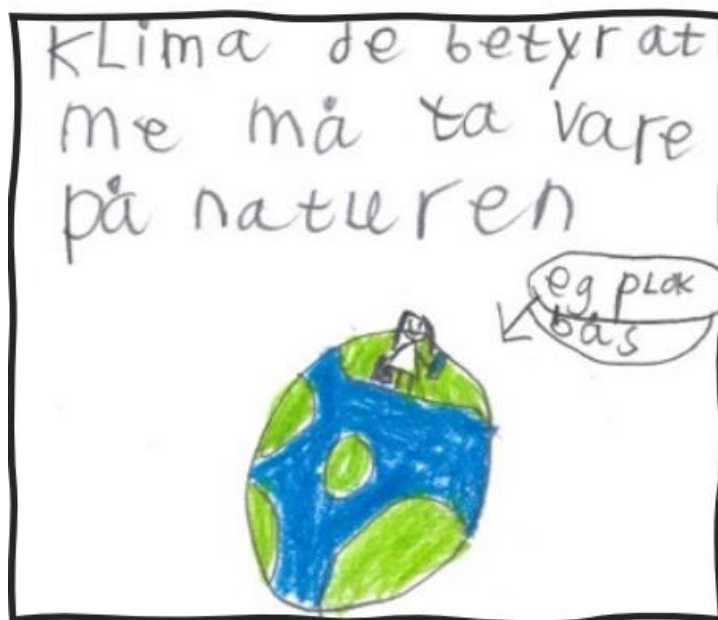 KLima de betyr at
me må ta vare
på naturen
eg pLok
bås